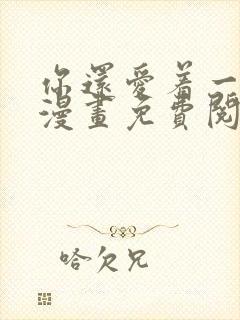 你還愛着一
漫畫免費閱
哈欠兄